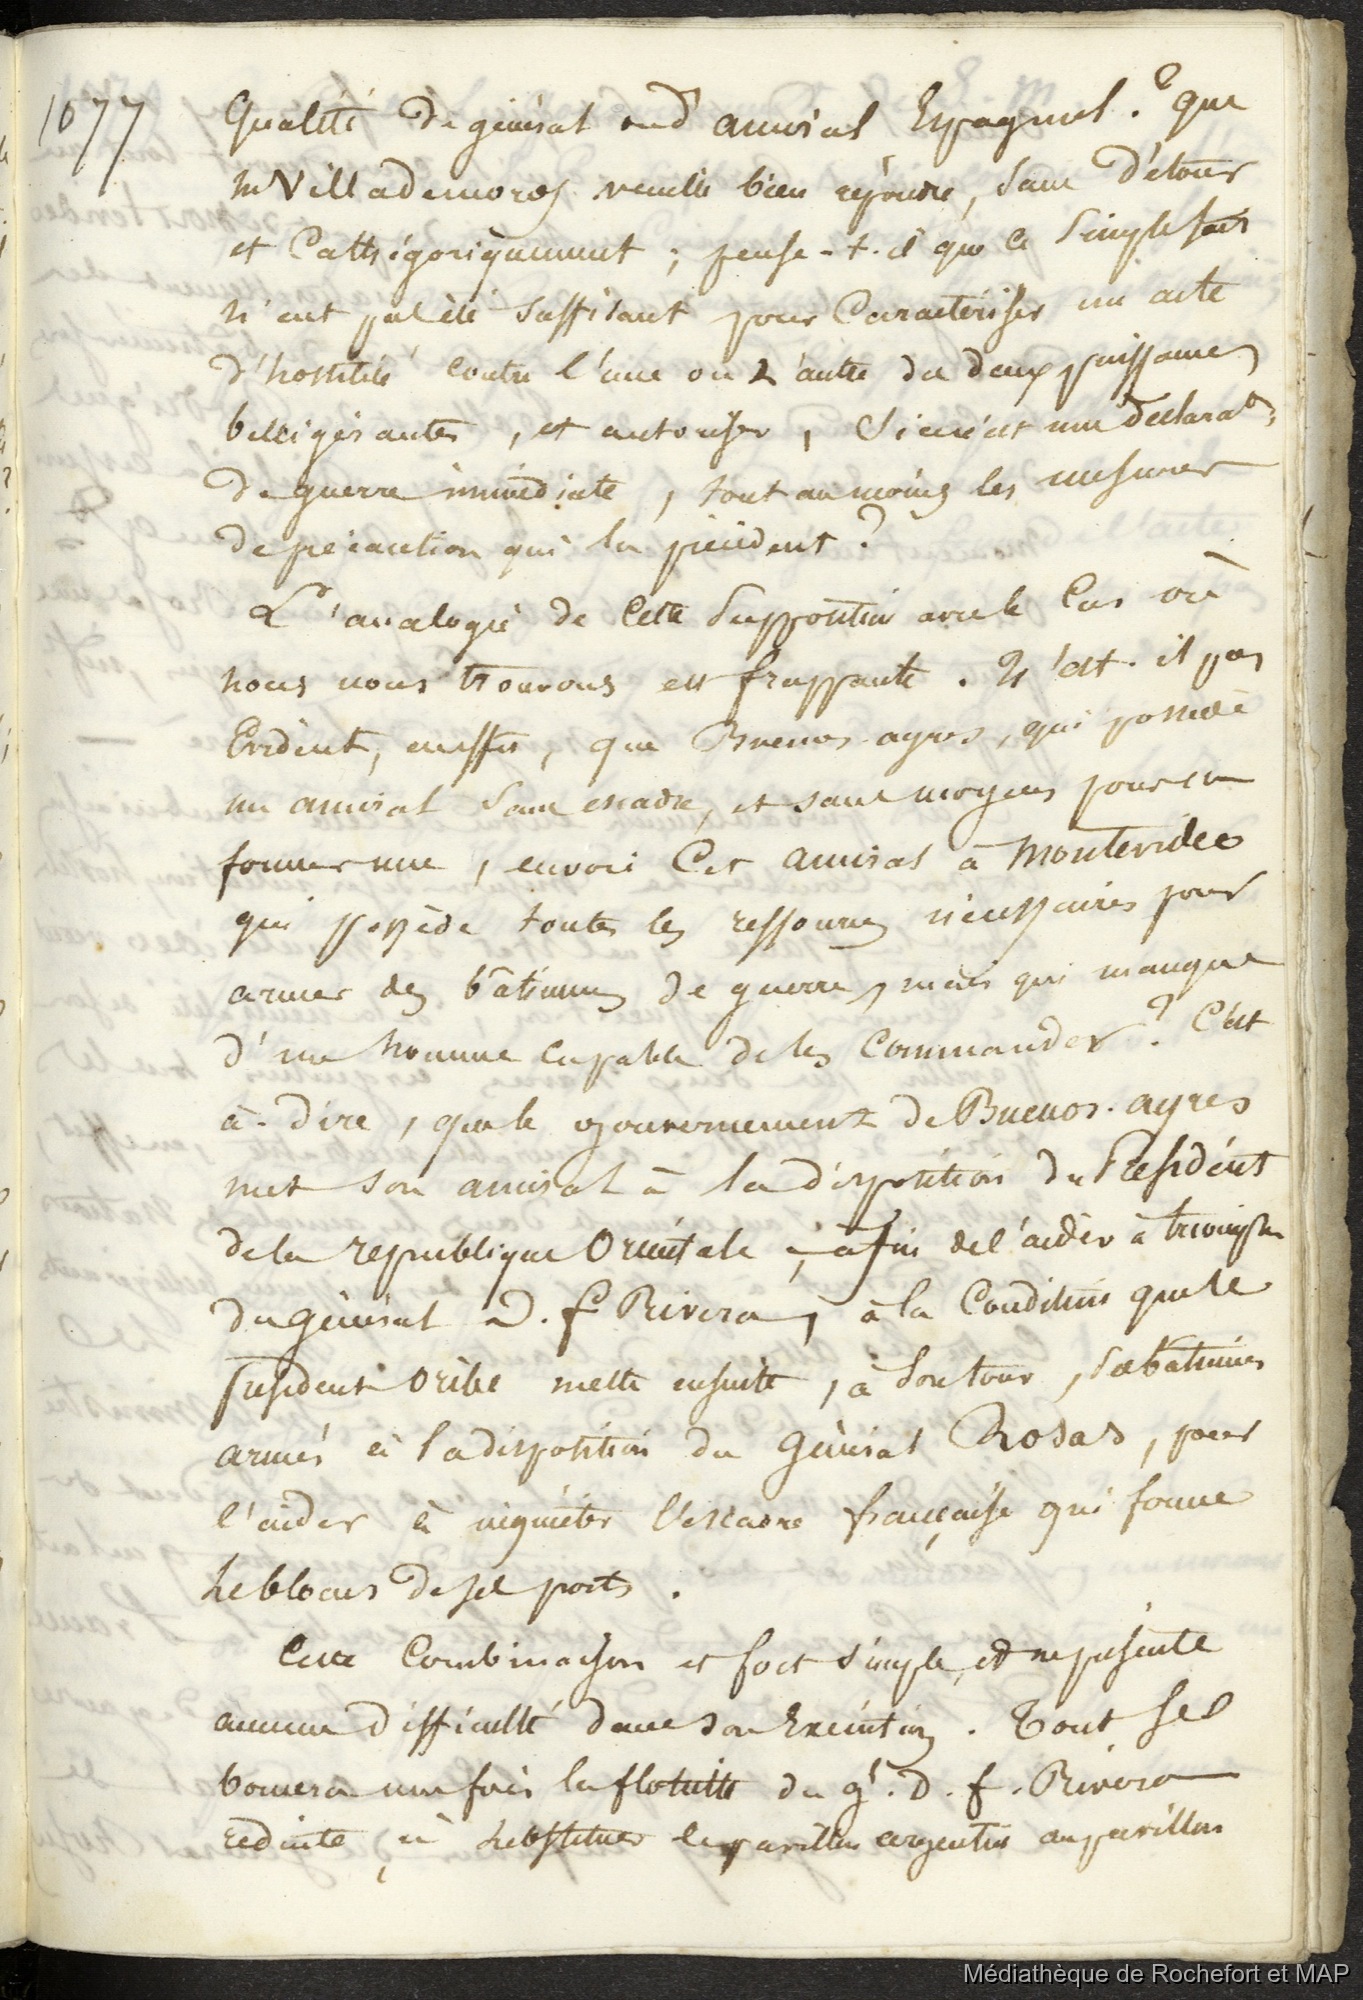 1077
Qualité de général ou d'amiral Espagnol ? que
m Villademoros veuille bien répondre, sans détour
et Cathégoriquement ; pense-t-il que ce Simple fait
n'eut pas été suffisant pour Caractériser un acte
d'hostilité contre l'une ou l'autre des deux puissances
belligérantes, et autoriser, Si ce n'est une déclarat.on
de guerre immédiate, tout au moins les mesures
de précaution qui la précèdent ?
L'analogie de Cette Supposition avec le Cas où
nous nous trouvons est frappante. N'est-il pas
Evident, en effet, que Buenos-ayres, qui possède
un amiral Sans escadre, et sans moyens pour en
former une, envoie Cet amiral à Montevideo
qui possède toutes les ressources nécessaires pour
armer des bâtimens de guerre, mais qui manque
d'un homme capable de les Commander ? C'est
à-dire, que le gouvernement de Buenos-ayres
met son amiral à la disposition du Président
de la république Orientale, afin de l'aider à triompher
du général D. f Rivera, à la Condition que le
Président Oribe mette ensuite, à Son tour, Ses bâtimens
armés à la disposition du Général Rosas, pour
l'aider à inquiéter l'escadre française qui forme
le blocus de Ses ports.
Cette Combinaison est fort Simple, et ne présente
aucune difficulté dans son Exécution. Tout Se
bornera une fois la flotille du g.l D. f. Rivera
réduite, à substituer le pavillon argentin au pavillon
Médiathèque de Rochefort et MAP